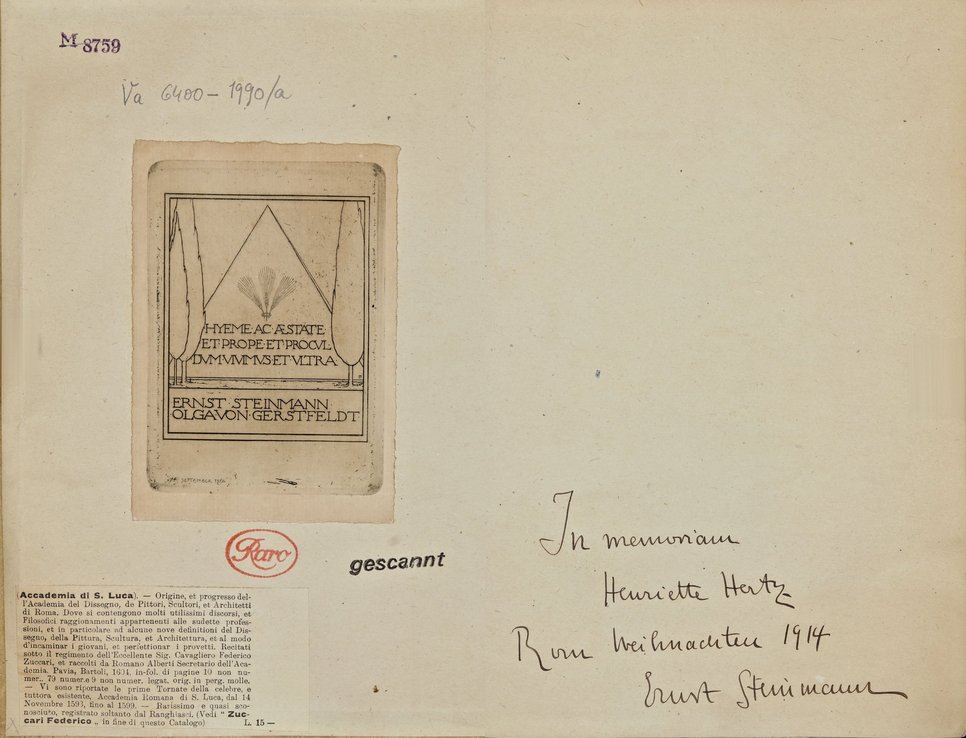 M 8759
Va 6400 – 1990/a
HYEME AC ÆSTATE
ET·PROPE·ET·PROCVL
DVM·VIVIMVS·ET·VLTRA
ERNST·STEINMANN
OLGA VON·GERSTFELDT
SEPTEMBER
Raro
gescannt
(Accademia di S. Luca). — Origine, et progesso del-
l'Academia del Dissegno, de Pittori, Scultori, et Architetti
di Roma. Dove si contengono molti utilissimi discorsi, et
Filosofici raggionamenti appartenenti alle sudette profes-
sioni, et in particolare ad alcune nove definitioni del Dis-
segno, della Pittura, Scultura, et Architettura, et al modo
d'incaminar i giovani, et perfettionar i provetti. Recitati
sotto il regimento dell'Eccellente Sig. Cavagliero Federico
Zuccari, et raccolti da Romano Alberti Secretario dell'Aca-
demia. Pavia, Bartoli, 1604, in-fol. di pagine 10 non nu-
mer., 79 numer. e 9 non numer. legat. orig. in perg. molle.
— Vi sono riportate le prime Tornate della celebre, e
tuttora esistente, Accademia Romana di S. Luca, dal 14
Novembre 1593, fino al 1599. — Rarissimo e quasi sco-
nosciuto, registrato soltanto dal Ranghiasci. (Vedi " Zuc-
cari Federico „ in fine di questo Catalogo) L. 15 —
In memoriam
Henriette Hertz
Rom Weihnachten 1914
Ernst Steinmann